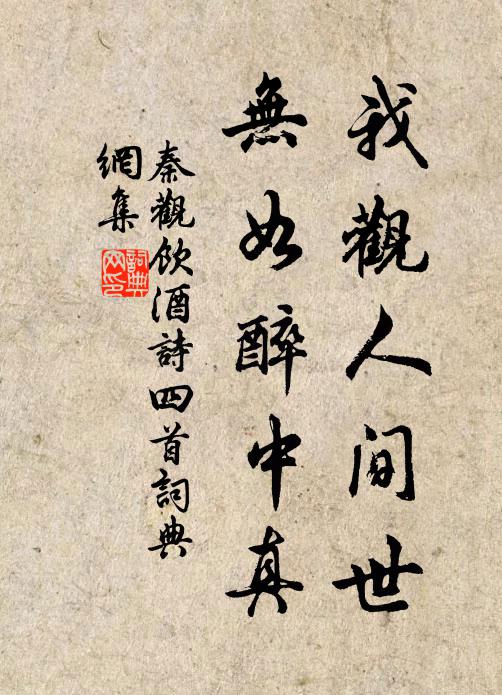 我觀人間世
無如醉中真
秦觀飲酒詩四首詞典
網集
詞典
网印